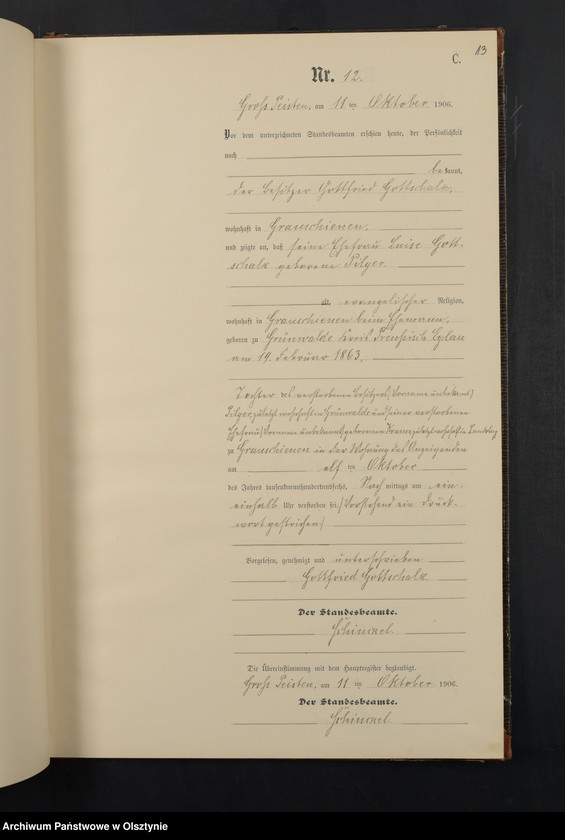 C.
13
Nr. 12.
Gross Peisten, am 11 ten Oktober 1906.
Vor dem unterzeichneten Standesbeamten erschien heute, der Persönlichkeit
nach
bekannt,
der Besitzer Gottfried Gottschalk,
wohnhaft in Grauschienen.
und zeigte an, daß seine Ehefrau Luise Gott-
schalk geborene Pilger.
alt, evangelischer Religion,
wohnhaft in Grauschienen beim Ehemann,
geboren zu Grünwalde Kreis Preußisch Eylau
am 19. Februar 1863.
Tochter des verstorbenen Besitzers (Vorname unbekannt)
Pilger, zuletzt wohnhaft in Grünwalde und seiner verstorbenen
Ehefrau (Vorname unbekannt) geborenen zuletzt wohnhaft in Landsberg
zu Grauschienen in der Wohnung des Anzeigenden
am elf ten Oktober
des Jahres tausendneunhundertundsechs, Nach mittags um ein-
einhalb Uhr verstorben sei. (Vorstehend ein Druck-
wort gestrichen)
Vorgelesen, genehmigt und unterschrieben
Gottfried Gottschalk
Der Standesbeamte.
Schimmel
Die Übereinstimmung mit dem Hauptregister beglaubigt.
Gross Peisten, am 11 ten Oktober 1906.
Der Standesbeamte.
Schimmel
Archiwum Państwowe w Olsztynie